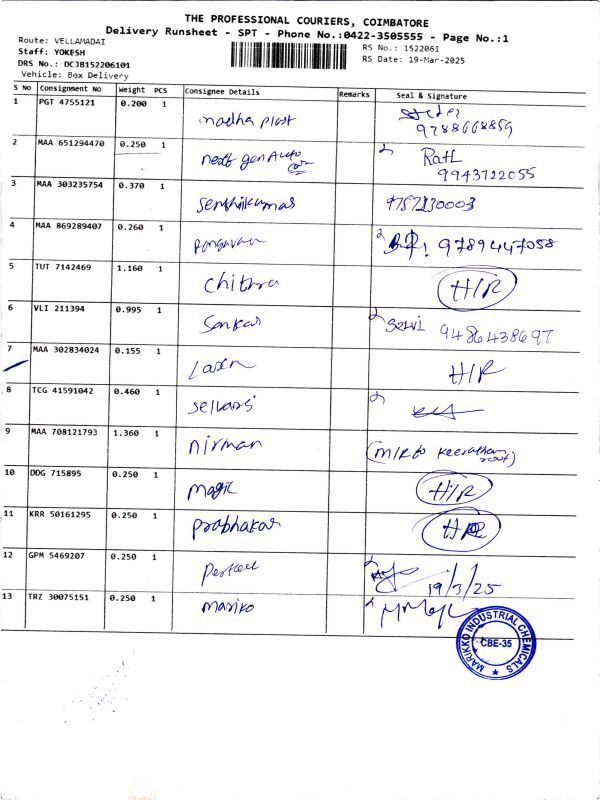 THE PROFESSIONAL COURIERS, COIMBATORE
Delivery Runsheet - SPT - Phone No.:0422-3505555 - Page No.:1
Route: VELLAMADAI
RS No.: 1522061
Staff: YOKESH
RS Date: 19-Mar-2025
DRS No.: DCJB152206101
Vehicle: Box Delivery
S No Consignment No Weight PCS Consignee Details Remarks Seal & Signature
1 PGT 4755121 0.200 1 madha plast
9788668859
2 MAA 651294470 0.250 1 next gen Auto com Rath
9943722055
3 MAA 303235754 0.370 1 Senthilkumar
4 MAA 869289407 0.260 1 9789447058
5 TUT 7142469 1.160 1 Chithra H/R
6 VLI 211394 0.995 1 Sankar Selvi 9486438697
7 MAA 302834024 0.155 1 H/R
8 TCG 41591042 0.460 1
9 MAA 708121793 1.360 1 nirman
10 DDG 715895 0.250 1 Magic H/R
11 KRR 50161295 0.250 1 prabhakar
12 GPM 5469207 0.250 1 19/3/25
13 TRZ 30075151 0.250 1 mariko
MARIKKO INDUSTRIAL CHEMICALS
CBE-35